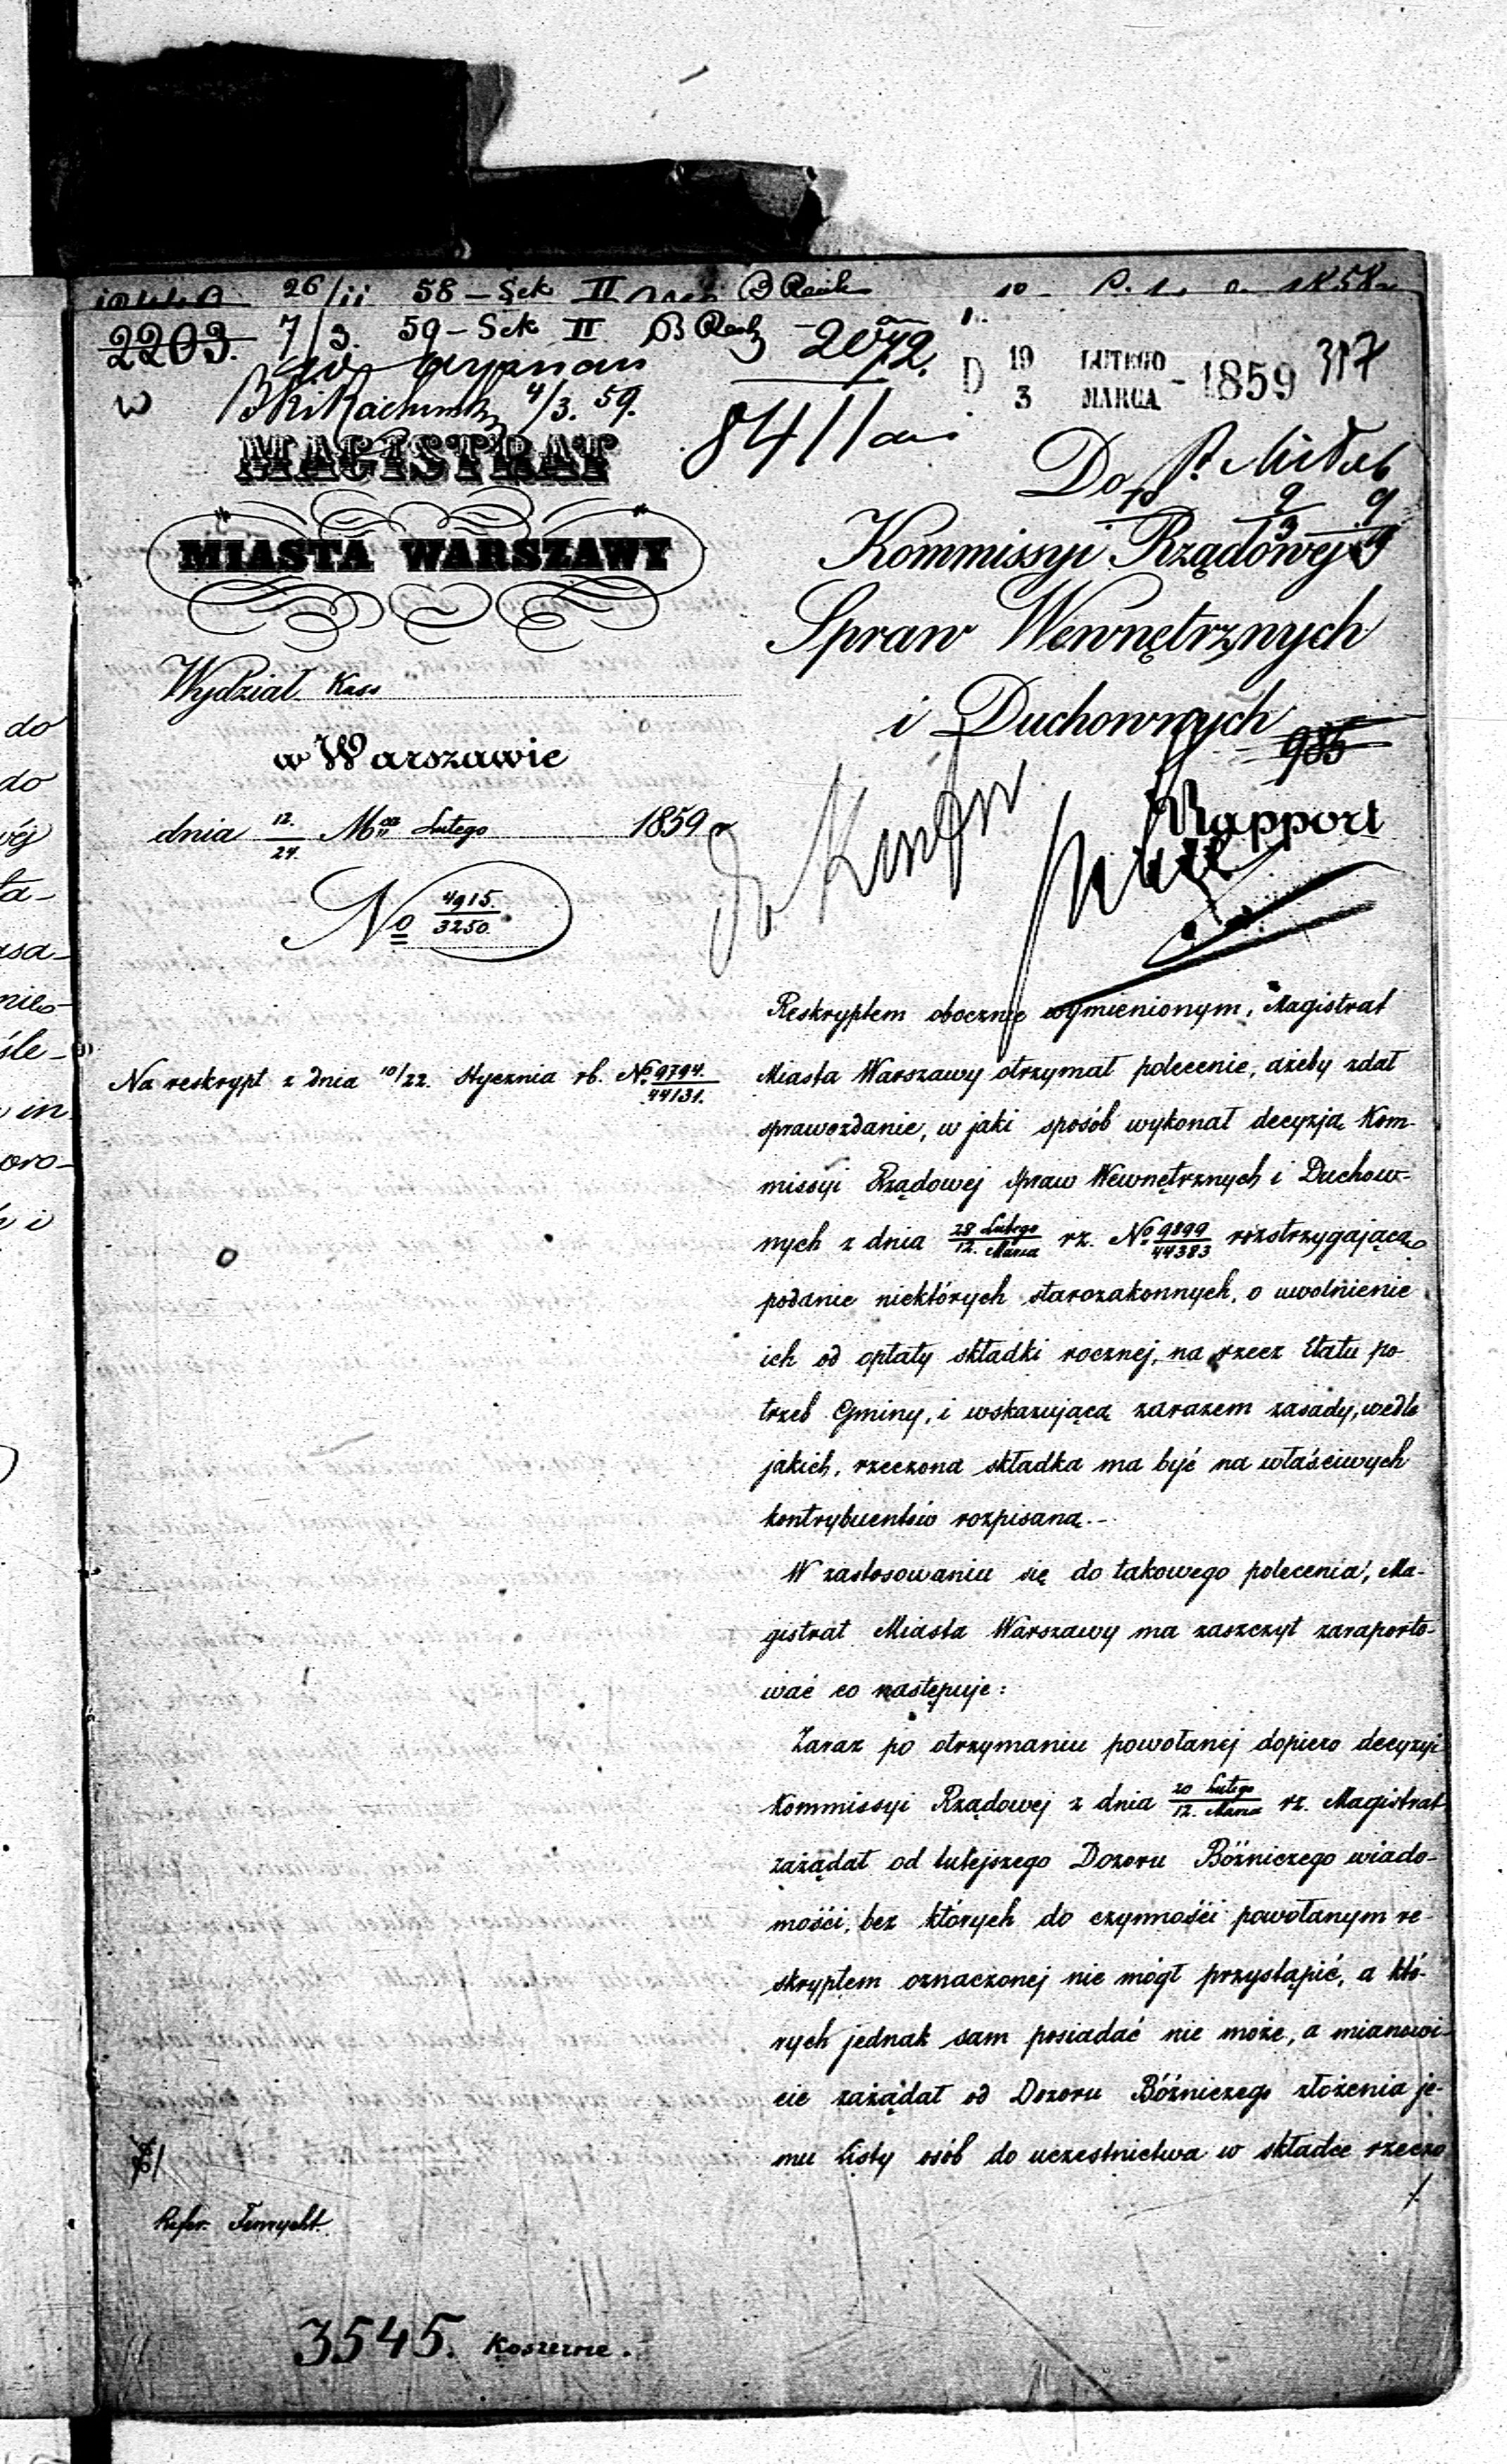 26/11 58 – Sek II
2203. 7/3. 59 – Sek II
2072.
D 19 LUTEGO
3 MARCA - 1859
317
w 4/3. 59.
8411
MAGISTRAT
MIASTA WARSZAWY
Wydział Kass
w Warszawie
dnia 12./24. Mca Lutego 1859 r
No 4915./3250.
Na reskrypt z dnia 10/22. Stycznia rb. No 9794./44131.
Do
Kommissyi Rządowej
Spraw Wewnętrznych
i Duchownych
985
Rapport
Reskryptem obocznie wymienionym, Magistrat
Miasta Warszawy otrzymał polecenie, ażeby zdał
sprawozdanie, w jaki sposób wykonał decyzją Kom-
missyi Rządowej Spraw Wewnętrznych i Duchow-
nych z dnia 28 Lutego/12. Marca rz. No 9899/44383 rozstrzygającą
podanie niektórych starozakonnych, o uwolnienie
ich od opłaty składki rocznej, na rzecz Etatu po-
trzeb Gminy, i wskazującą zarazem zasady, wedle
jakich, rzeczona składka ma być na właściwych
kontrybuentów rozpisaną.-
W zastosowaniu się do takowego polecenia, Ma-
gistrat Miasta Warszawy ma zaszczyt zaraporto-
wać co następuje:
Zaraz po otrzymaniu powołanej dopiero decyzyi
Kommissyi Rządowej z dnia 20 Lutego/12. Marca rz. Magistrat
zażądał od tutejszego Dozoru Bóżniczego wiado-
mości, bez których do czynności powołanym re-
skryptem oznaczonej nie mógł przystąpić, a któ-
rych jednak sam posiadać nie może, a mianowi-
cie zażądał od Dozoru Bóżniczego złożenia je-
mu Listy osób do uczestnictwa w składce rzeczo
./.
Refer.
3545. Koszerne.
do
do
wéj
ta-
nie-
śle-
in
oro-
i